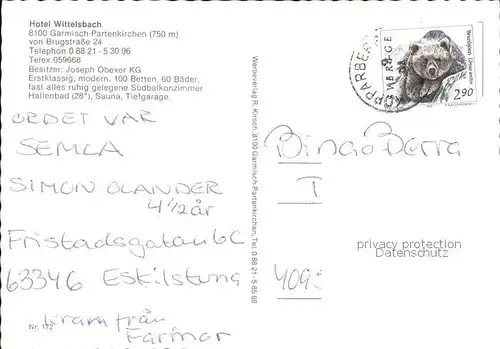 Hotel Wittelsbach
8100 Garmisch-Partenkirchen (750 m)
von Brugstraße 24
Telephon 0 88 21 - 5 30 96
Telex 059668
Besitzer: Joseph Obexer KG
Erstklassig, modern, 100 Betten, 60 Bäder,
fast alles ruhig gelegene Südbalkonzimmer
Hallenbad (28°), Sauna, Tiefgarage.
ORDET VAR
SEMLA
SIMON OLANDER
4 1/2 år
Fristadsgatan 6C
63346 Eskilstuna
kram från
Farmor
Nr. 172
Werbeverlag R. Kirsch, 8100 Garmisch-Partenkirchen, Tel. 0 88 21 - 5 85 68
SVERIGE
2.90
BingoBerra
I
409
privacy protection
Datenschutz